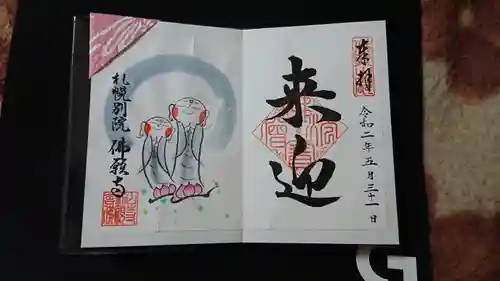 来迎
令和二年五月三十一日
札幌別院 佛願寺
G